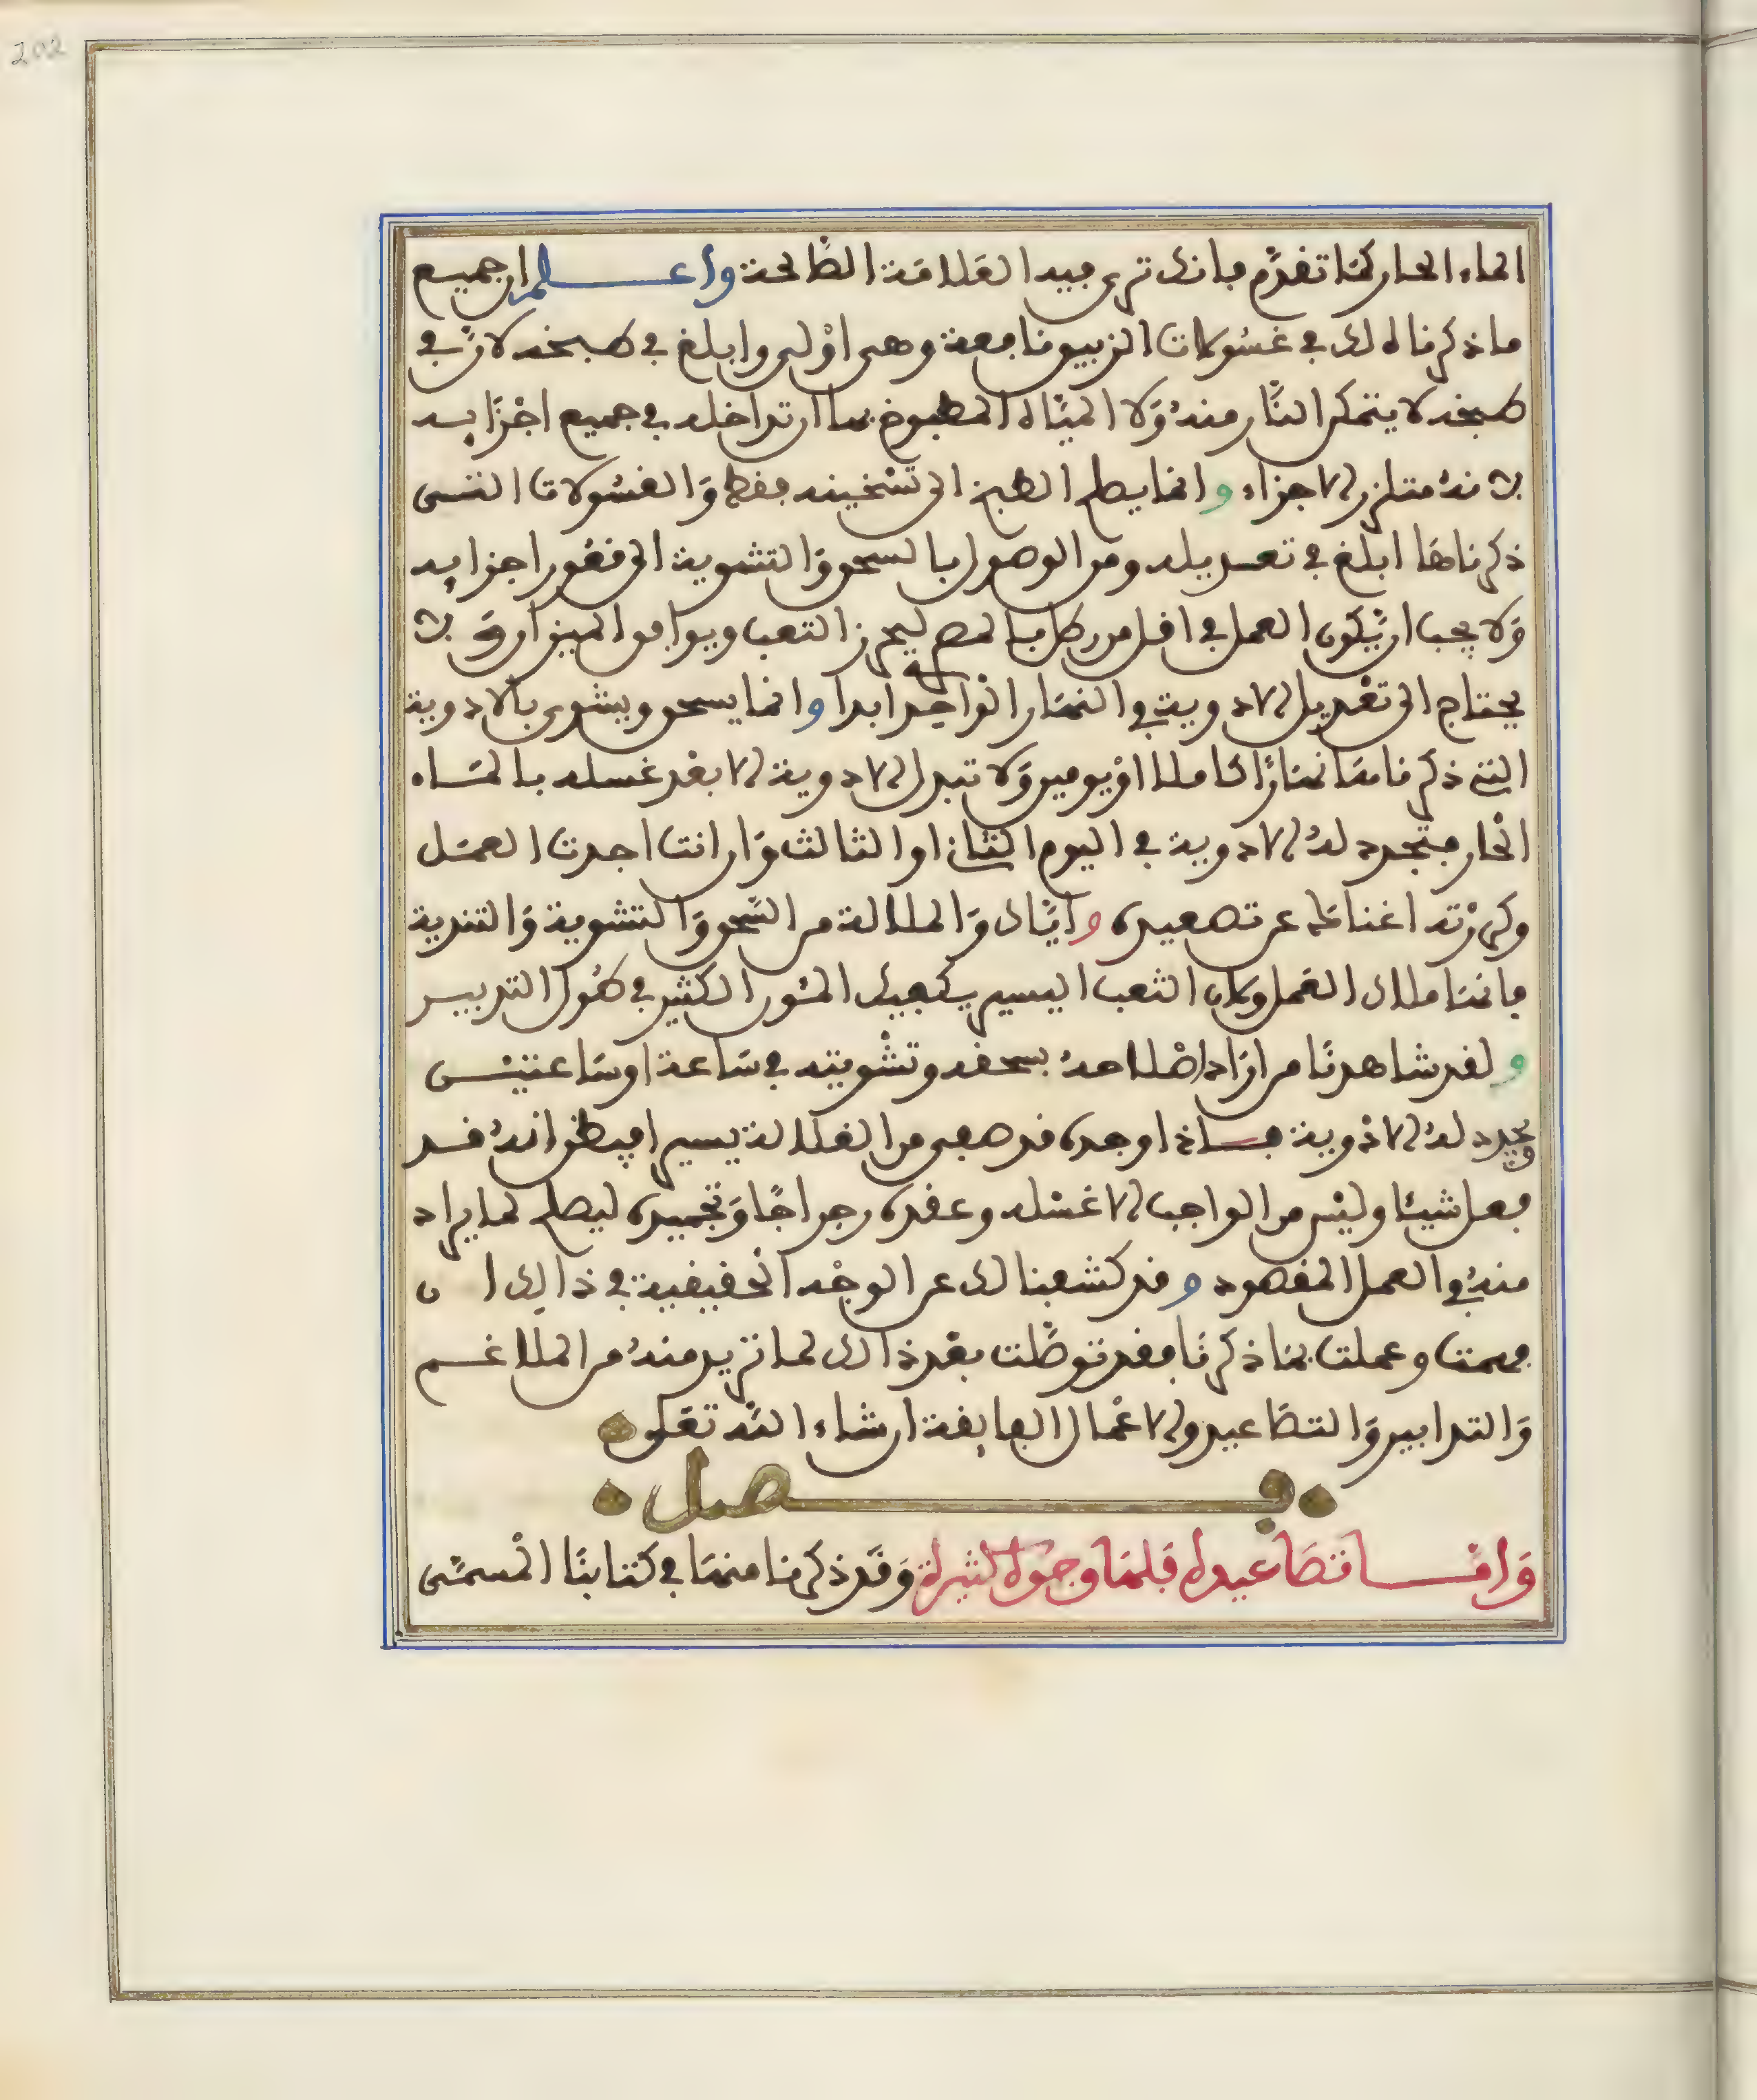 202
الماء الحار كمَا تقدَّم فانك ترى فيه العَلامَة الصَّالحة واعلم ان جميع
ما ذكرناه لك في غسُولات الزيبق نافعة وهي اوْلى وابلغ في طبخه لانَّ في
طبخه لا يتمكن النَّار منهُ وَلا الميَاه المطبوخ بها ان تداخله في جميع اجْزَايِه
لانهُ متلزز الاجزاء وانما يصلح الطبخ الى تسْخينه فقط وَالغسُولات التى
ذكرناهَا ابلغ في تعديله ومن الوصول بالسحق وَالتشوية الى قعُور اجزايِه
وَلا يجب ان يَّكون العمل في اقل من رطل بالمصرى ليحرز التعب ويوافق الميزان وَ لا
يحتاج الى تعْديل الادوية في النهَار الوَاحِد ابدا وانما يسحق ويشوى بالادوية
التى ذكرنا معَا نهَارًا كاملا اوْ يومين وَلا تبدل الادوية الا بعْد غسله بالمَاء
الحَار فتجدد لهُ الادوية في اليوم الثَّانى او الثالث وَان انت اجدت العمَل
وكررْته اغناك عن تصعيده وايَّاك وَالملالة من السَّحق وَالتشوية وَالتندية
فانهَا ملاك العَمل وكان التعب اليسير يكفيك المئون الكثير في طُول التدبير
ولقد شاهدنَا من ارَاد اصْلاحهُ بسحقه وتشْويته في سَاعة او سَاعتين
ويجدد لهُ الادْوية فاذا وجده قد صفى من الغلالة يسيرا فيظن انهُ قد
فعل شيئا وليْس من الواجب الا غسْله وعقده رجراجًا وَتجْميده ليصلح لما يراد
منهُ في العمل المقصود وقد كشفنا لك عن الوجْه الحَقيقية في ذالِك ا ن
فهمت وعملت بمَا ذكرنَا فقد توصَّلت بعْد ذالك لما تريد منهُ من الملاغم
وَالتدابير وَالتصَاعيد والاعْمال الفايِقة ان شاء اللّه تعَلى
فصل
وَامَّا تصَاعيده فلهَا وجُوه كثيرة وَقَد ذكرنا منهَا في كتابنَا المْسمَّى